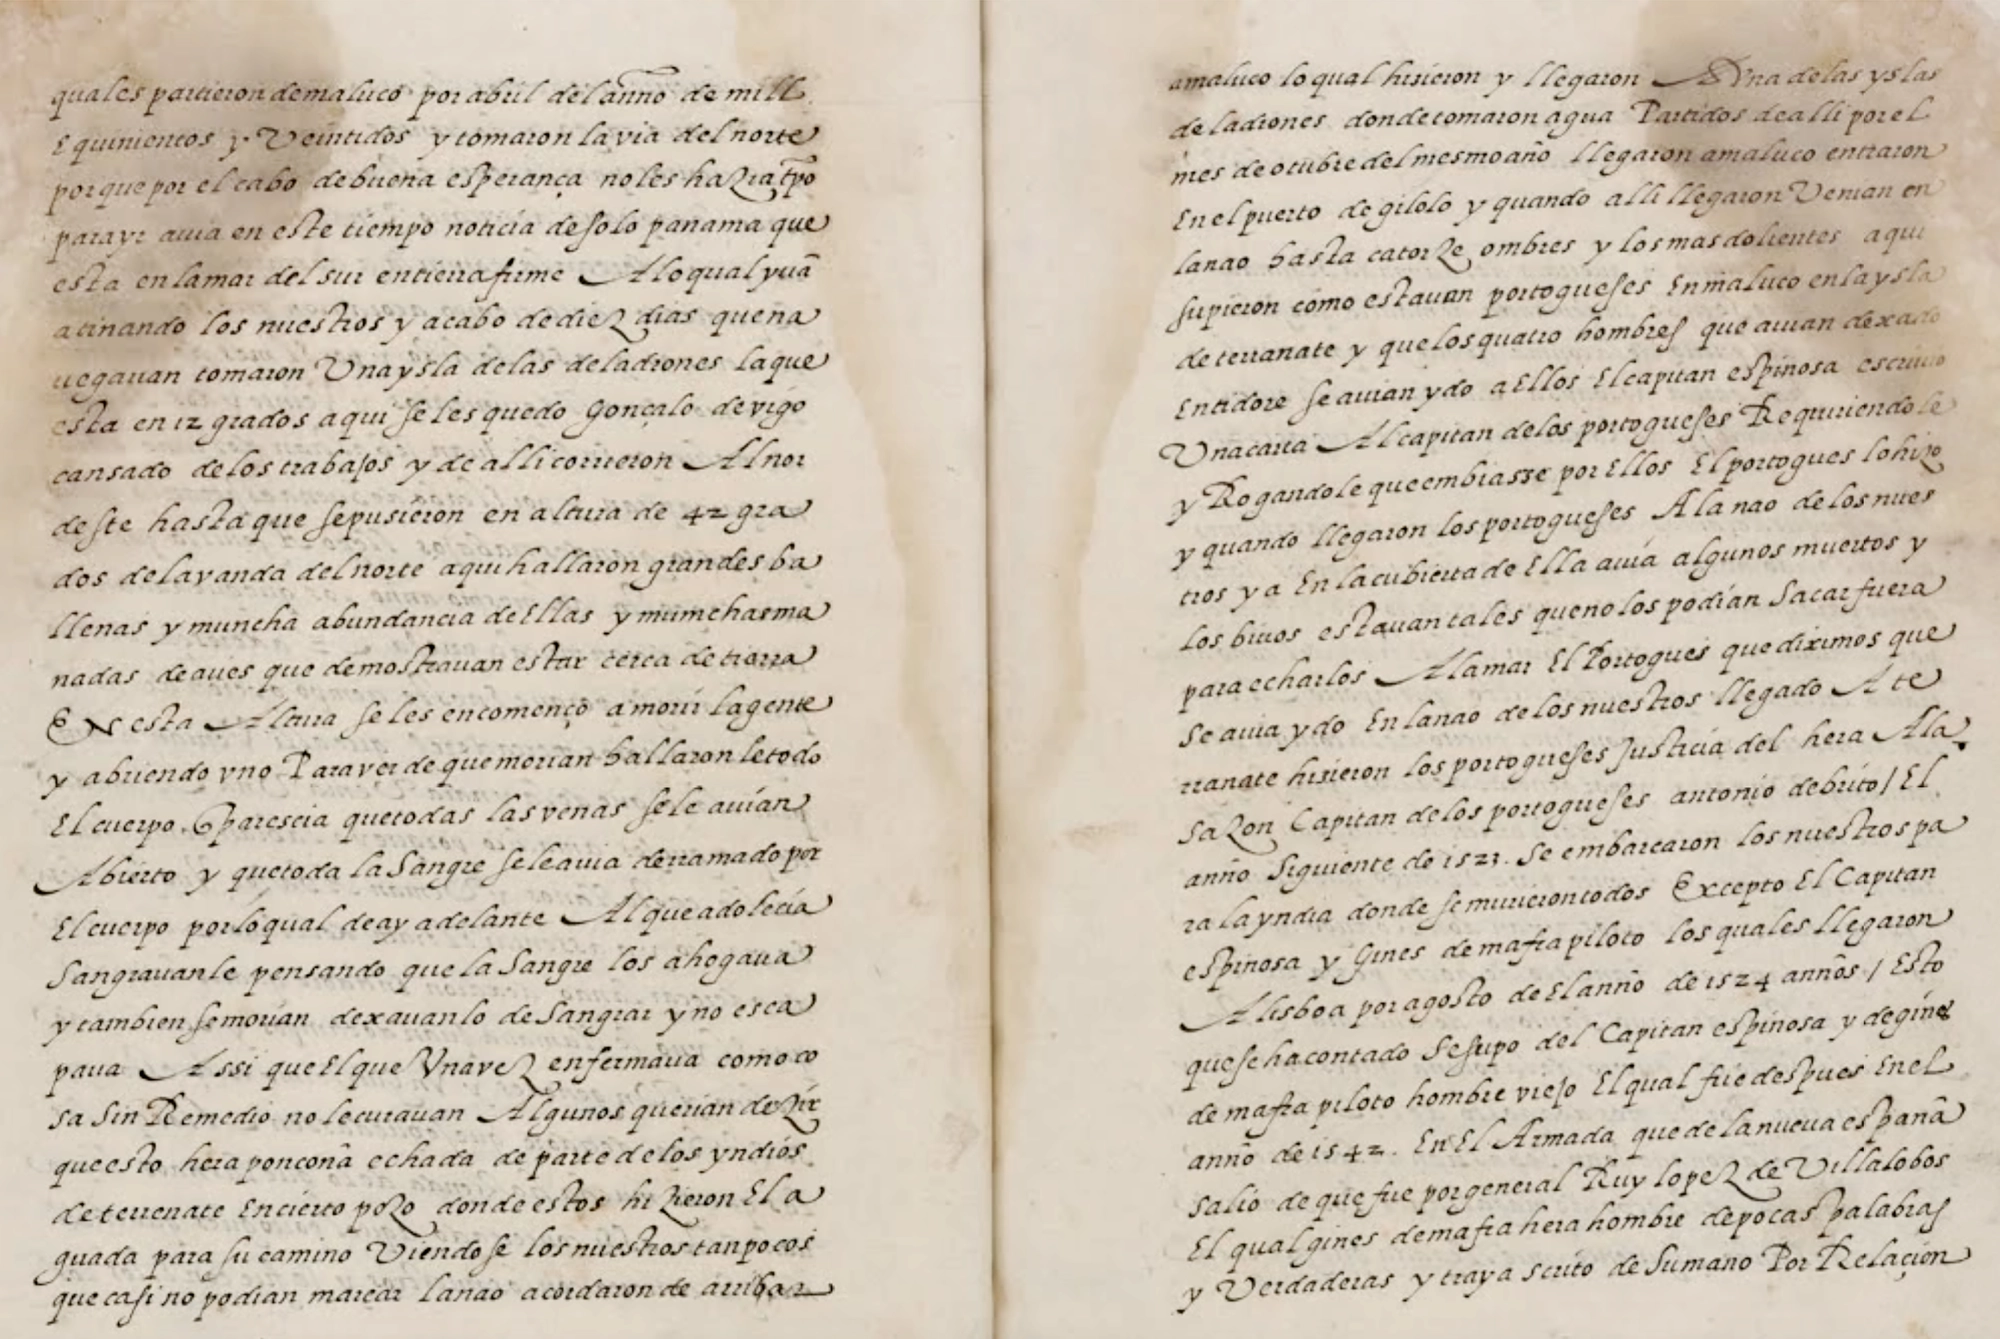 quales partieron de maluco por abril del anno de mill
E quinientos y Veintidos y tomaron la via del norte
porque por el cabo de buena esperança no les hazia tpo
para yr auia en este tiempo noticia de solo panama que
esta en la mar del sur en tierra firme A lo qual yuã
atinando los nuestros y acabo de diez dias que na
uegauan tomaron Una ysla de las de ladrones la que
esta en 12 grados aqui se les quedo Gonçalo de vigo
cansado de los trabajos y de alli corrieron Al nor
deste hasta que se pusieron en altura de 42 gra
dos de la vanda del norte aqui hallaron grandes ba
llenas y muncha abundancia de Ellas y munchas ma
nadas de aues que demostrauan estar cerca de tierra
EN esta Altura se les encomenço a morir la gente
y abriendo vno Para ver de que morian hallaron le todo
El cuerpo q parescia que todas las venas se le auían
Abierto y que toda la Sangre se le auia derramado por
El cuerpo por lo qual de ay adelante Al que adolecía
Sangrauanle pensando que la Sangre los ahogaua
y tambien se morian dexauanlo de Sangrar y no esca
paua Assi que El que Una vez enfermaua como co
sa Sin Remedio no le curauan Algunos querian dezir
que esto hera ponçoña echada de parte de los yndios
de terrenate En cierto pozo donde estos hizieron El a
guada para su camino Viendose los nuestros tan pocos
que casi no podian marear la nao acordaron de arribar
a maluco lo qual hisieron y llegaron A Vna de las yslas
de ladrones donde tomaron agua Partidos de alli por el
mes de otubre del mesmo año llegaron a maluco entraron
En el puerto de gilolo y quando alli llegaron Venian en
la nao hasta catorze ombres y los mas dolientes aqui
supieron cómo estauan portogueses En maluco en la ysla
de terranate y que los quatro hombres que auian dexado
En tidore se auian ydo a Ellos El capitan espinosa escriuio
Una carta Al capitan de los portogueses Requiriendole
y Rogandole que embiasse por Ellos El portogues lo hizo
y quando llegaron los portogueses A la nao de los nues
tros ya En la cubierta de Ella auía algunos muertos y
los biuos estauan tales que no los podían Sacar fuera
para echarlos A la mar El Portogues que diximos que
Se auia ydo En la nao de los nuestros llegado A te
rranate hisieron los portogueses Justicia del hera A la
Sazon Capitan de los portogueses antonio de brito / El
anño Siguiente de 1523. Se embarcaron los nuestros pa
ra la yndia donde se murieron todos Excepto El Capitan
espinosa y Gines de mafra piloto los quales llegaron
A lisboa por agosto de El anño de 1524 anños / Esto
que se ha contado Se supo del Capitan espinosa y de gines
de mafra piloto hombre viejo El qual fue despues En el
anño de 1542. En El Armada que de la nueua españa
Salio de que fue por general Ruy lopez de Villalobos
El qual gines de mafra hera hombre de pocas palabras
y Verdaderas y traya scrito de Su mano Por Relaçion